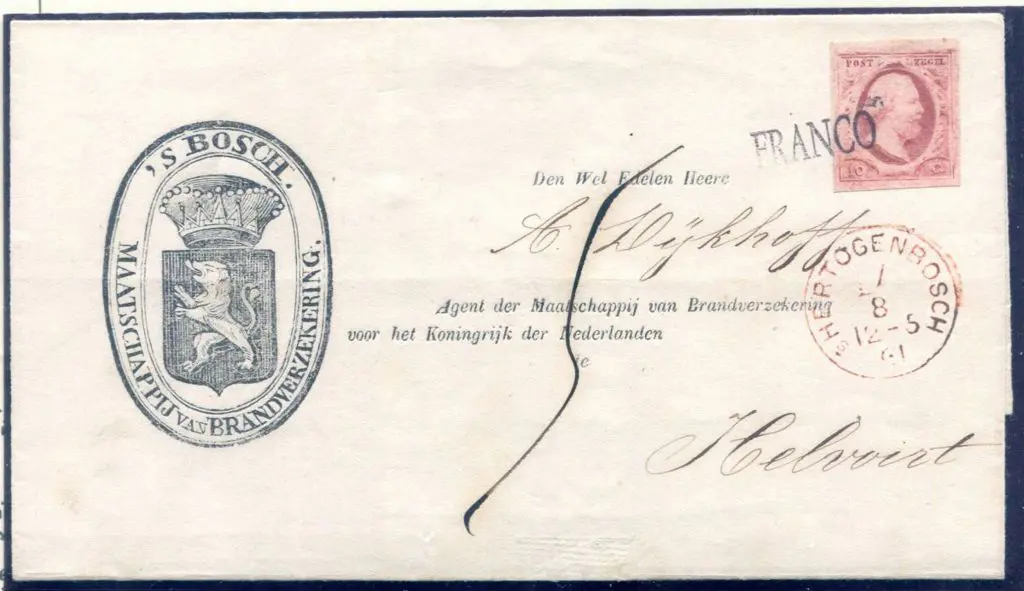 'S BOSCH.
MAATSCHAPPIJ VAN BRANDVERZEKERING.
POST ZEGEL
FRANCO
10 C
Den Wel Edelen Heere
A. Dijkhoff
Agent der Maatschappij van Brandverzekering
voor het Koningrijk der Nederlanden
te
Helvoirt
'S HERTOGENBOSCH
1
8
12-5
61